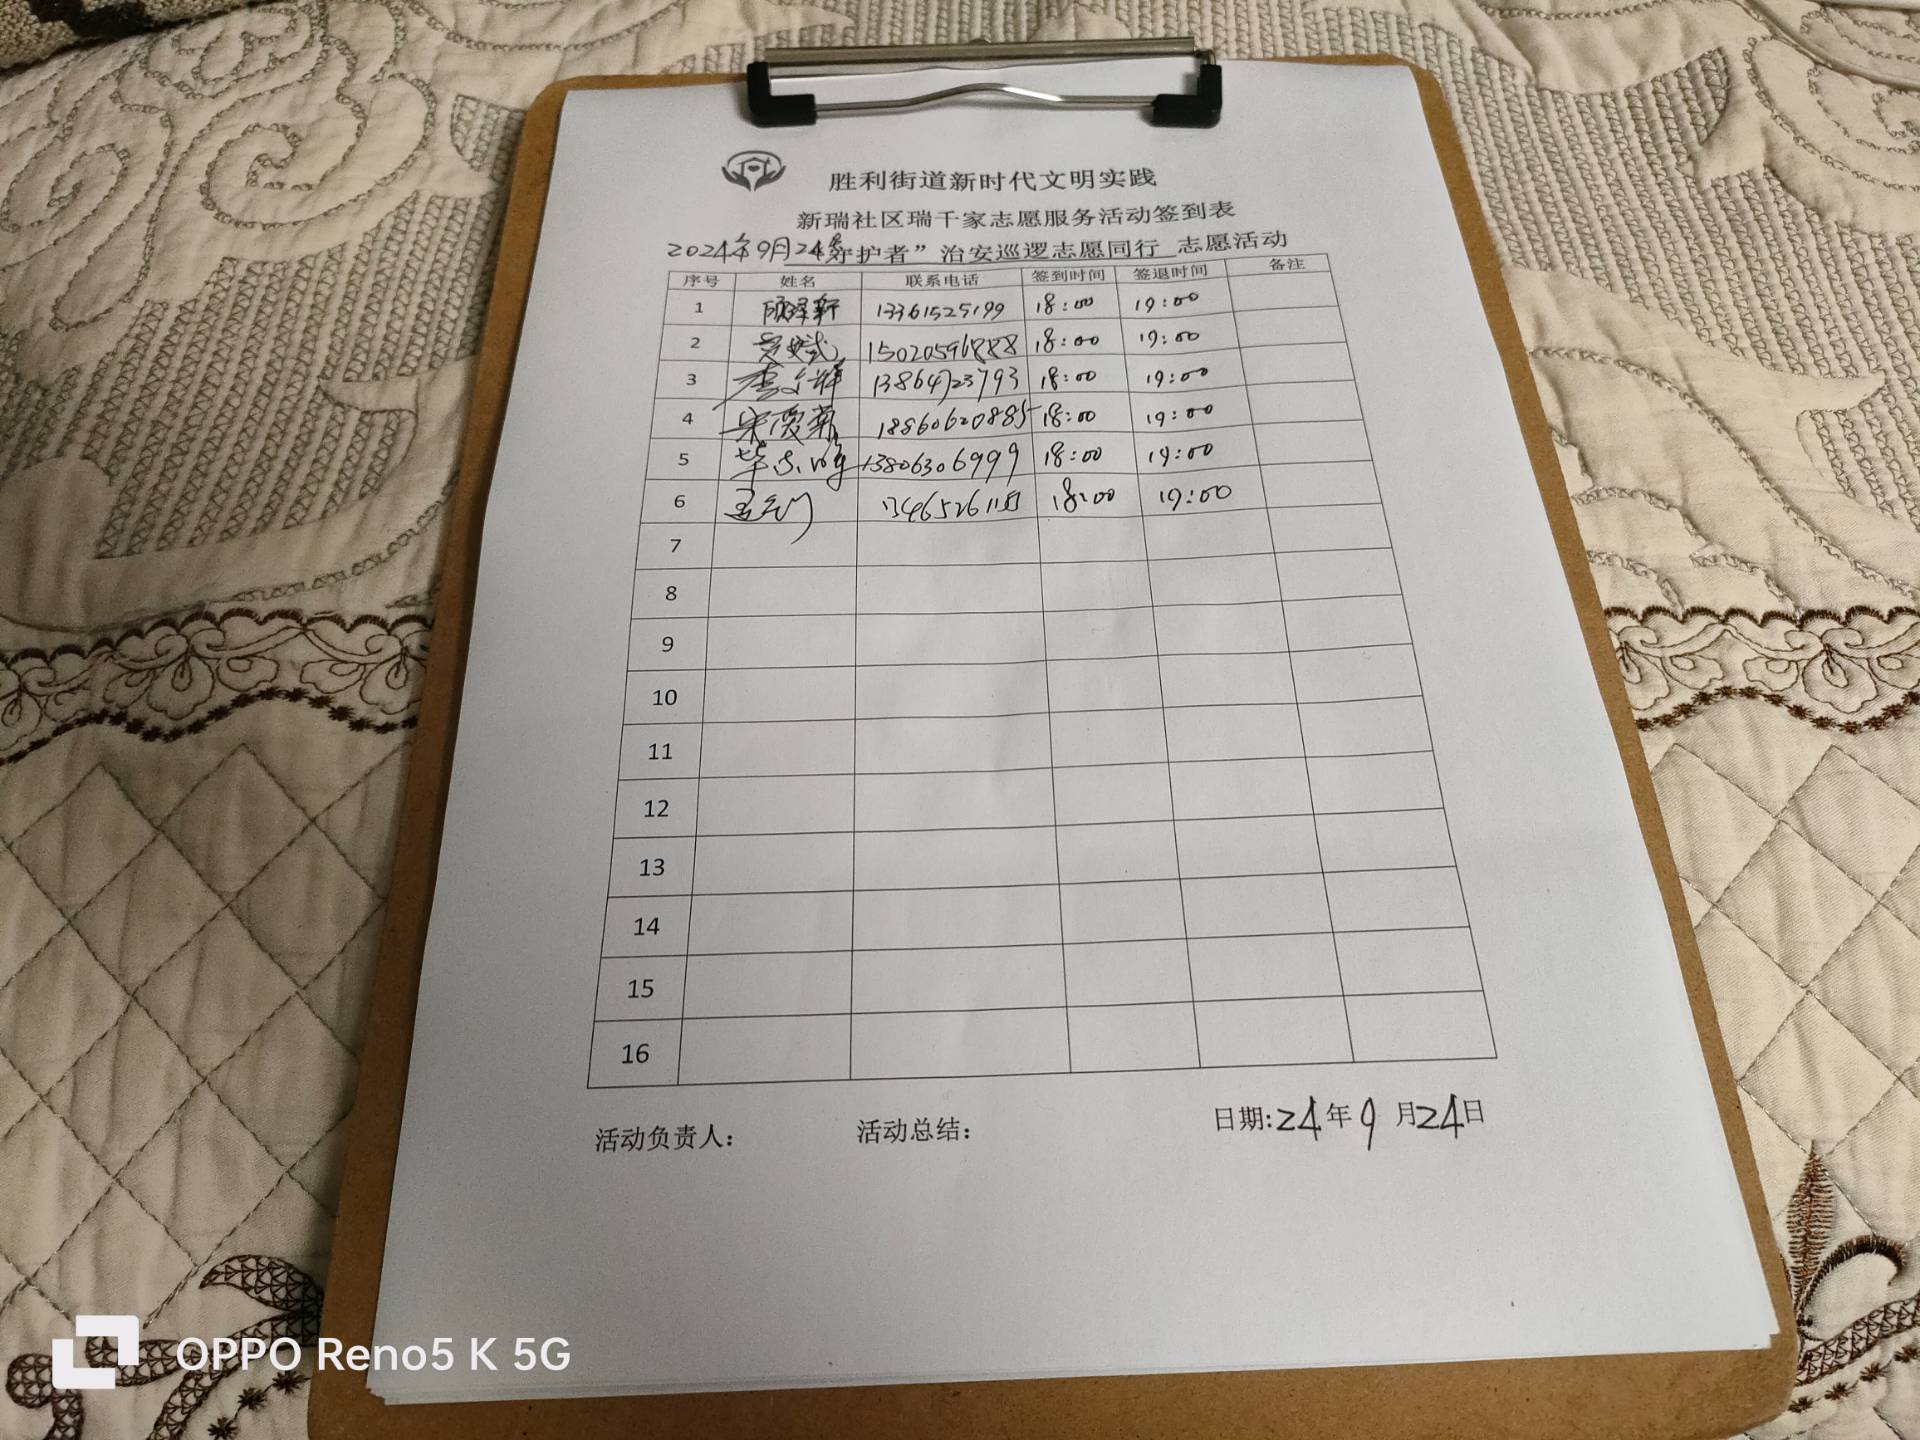 胜利街道新时代文明实践
新瑞社区瑞千家志愿服务活动签到表
2024年9月24 守护者”治安巡逻志愿同行 志愿活动
序号 姓名 联系电话 签到时间 签退时间 备注
1 顾泽轩 13361525199 18:00 19:00
2 15020596888 18:00 19:00
3 13864723793 18:00 19:00
4 宋爱菊 18860620885 18:00 19:00
5 13806306999 18:00 19:00
6 18:00 19:00
7
8
9
10
11
12
13
14
15
16
活动负责人: 活动总结: 日期:24年9月24日
OPPO Reno5 K 5G